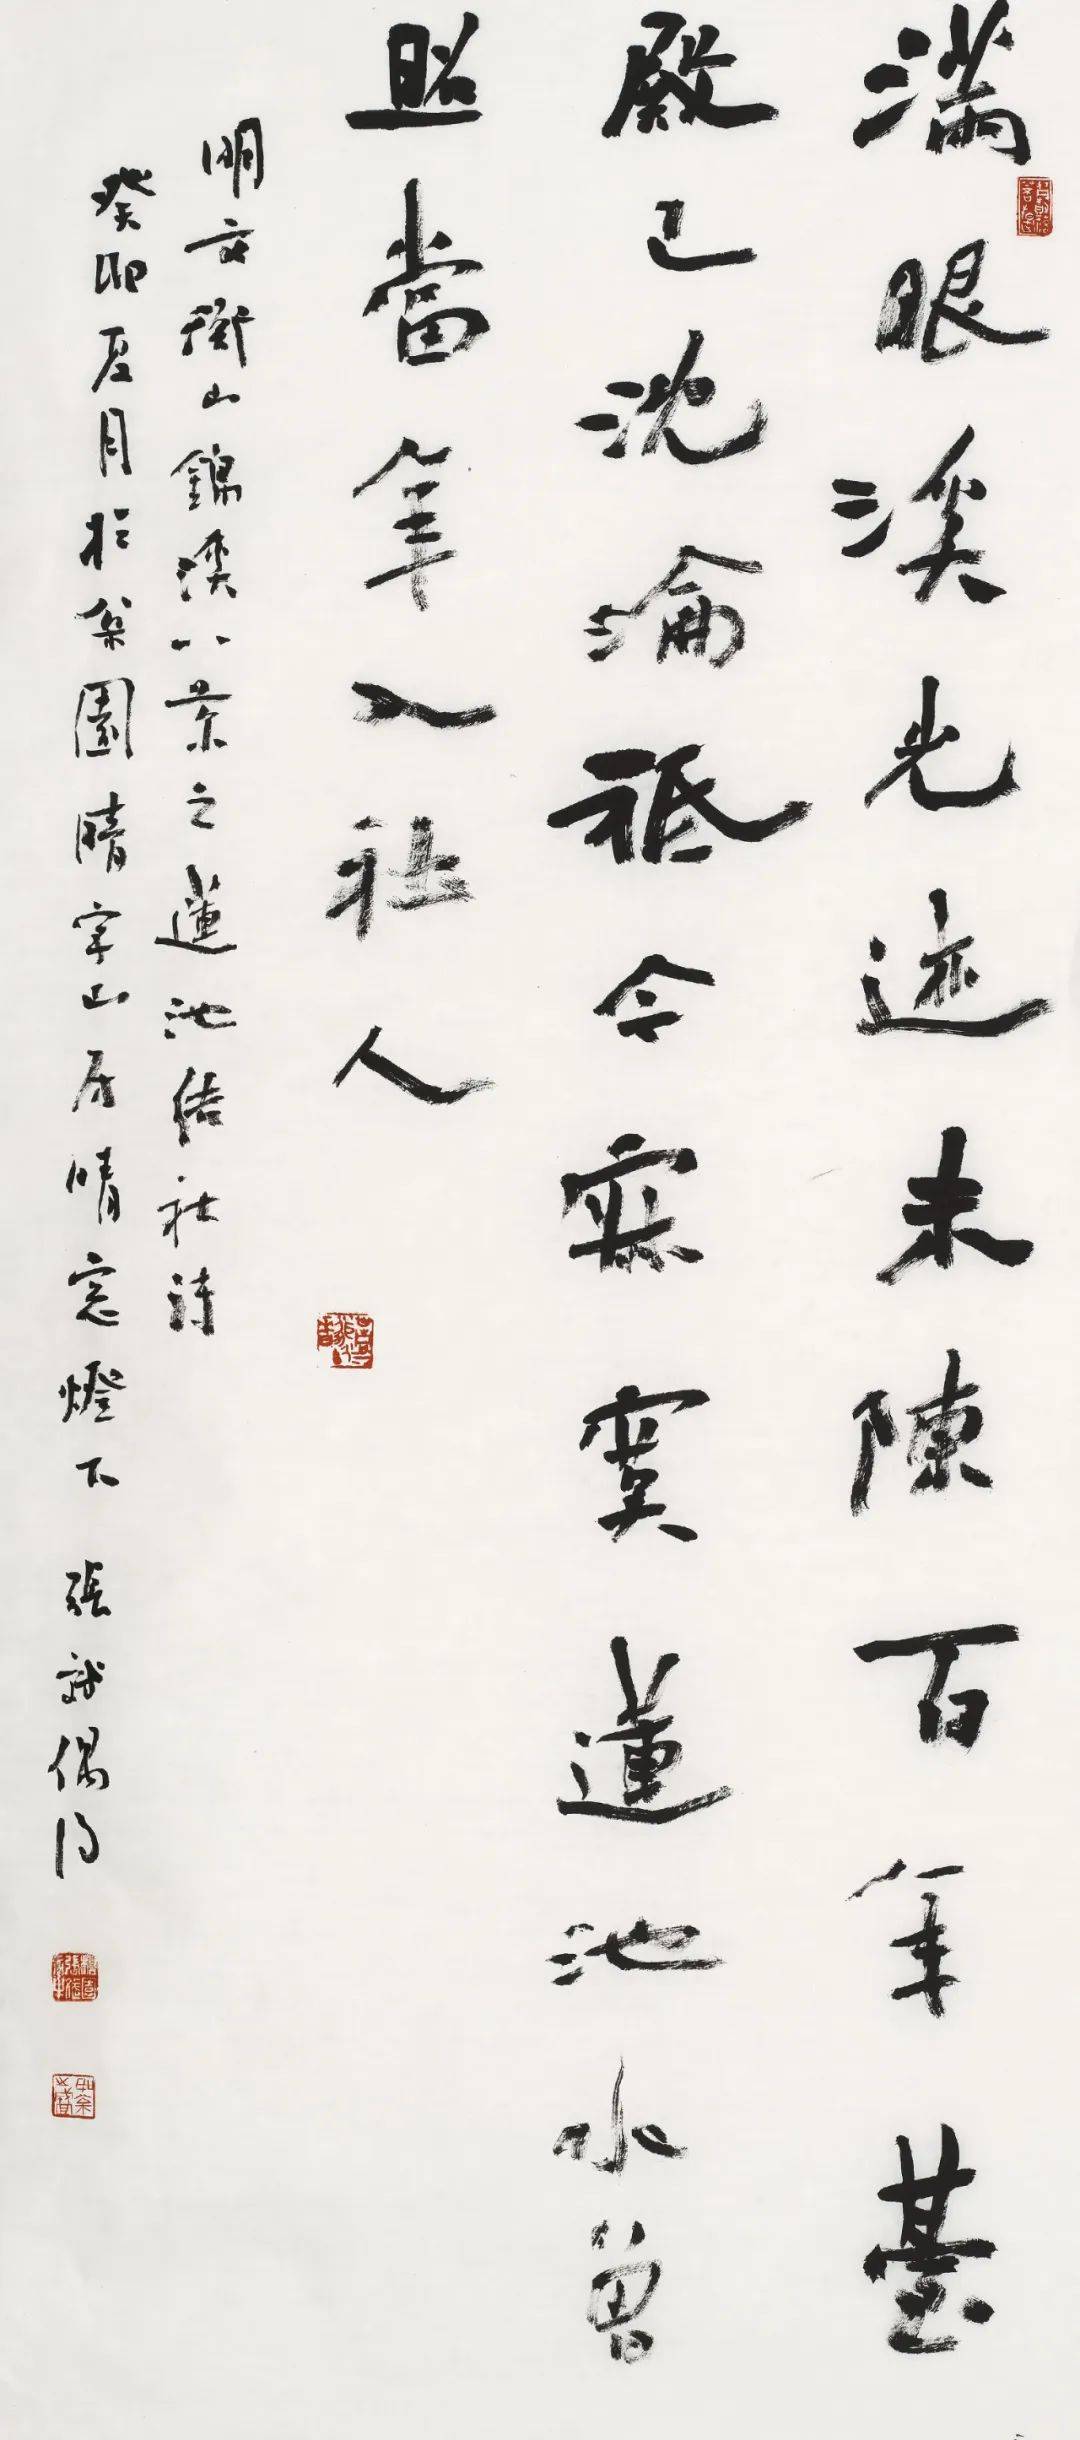 满眼溪光迹未陳百年臺
殿已沈淪祗今寂寞蓮池水曾
照當年入社人
明文衡山錦溪八景之蓮池結社詩
癸卯夏月於 園晴 山居晴窓燈下 張 偶得